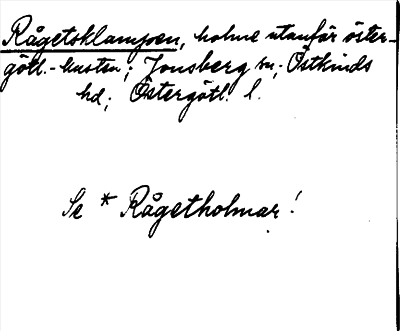 Rågetsklampen, holme utanför öster-
götl.-kusten; Jonsberg sn; Östkinds
hd; Östergötl. l.
Se * Rågetholmar!